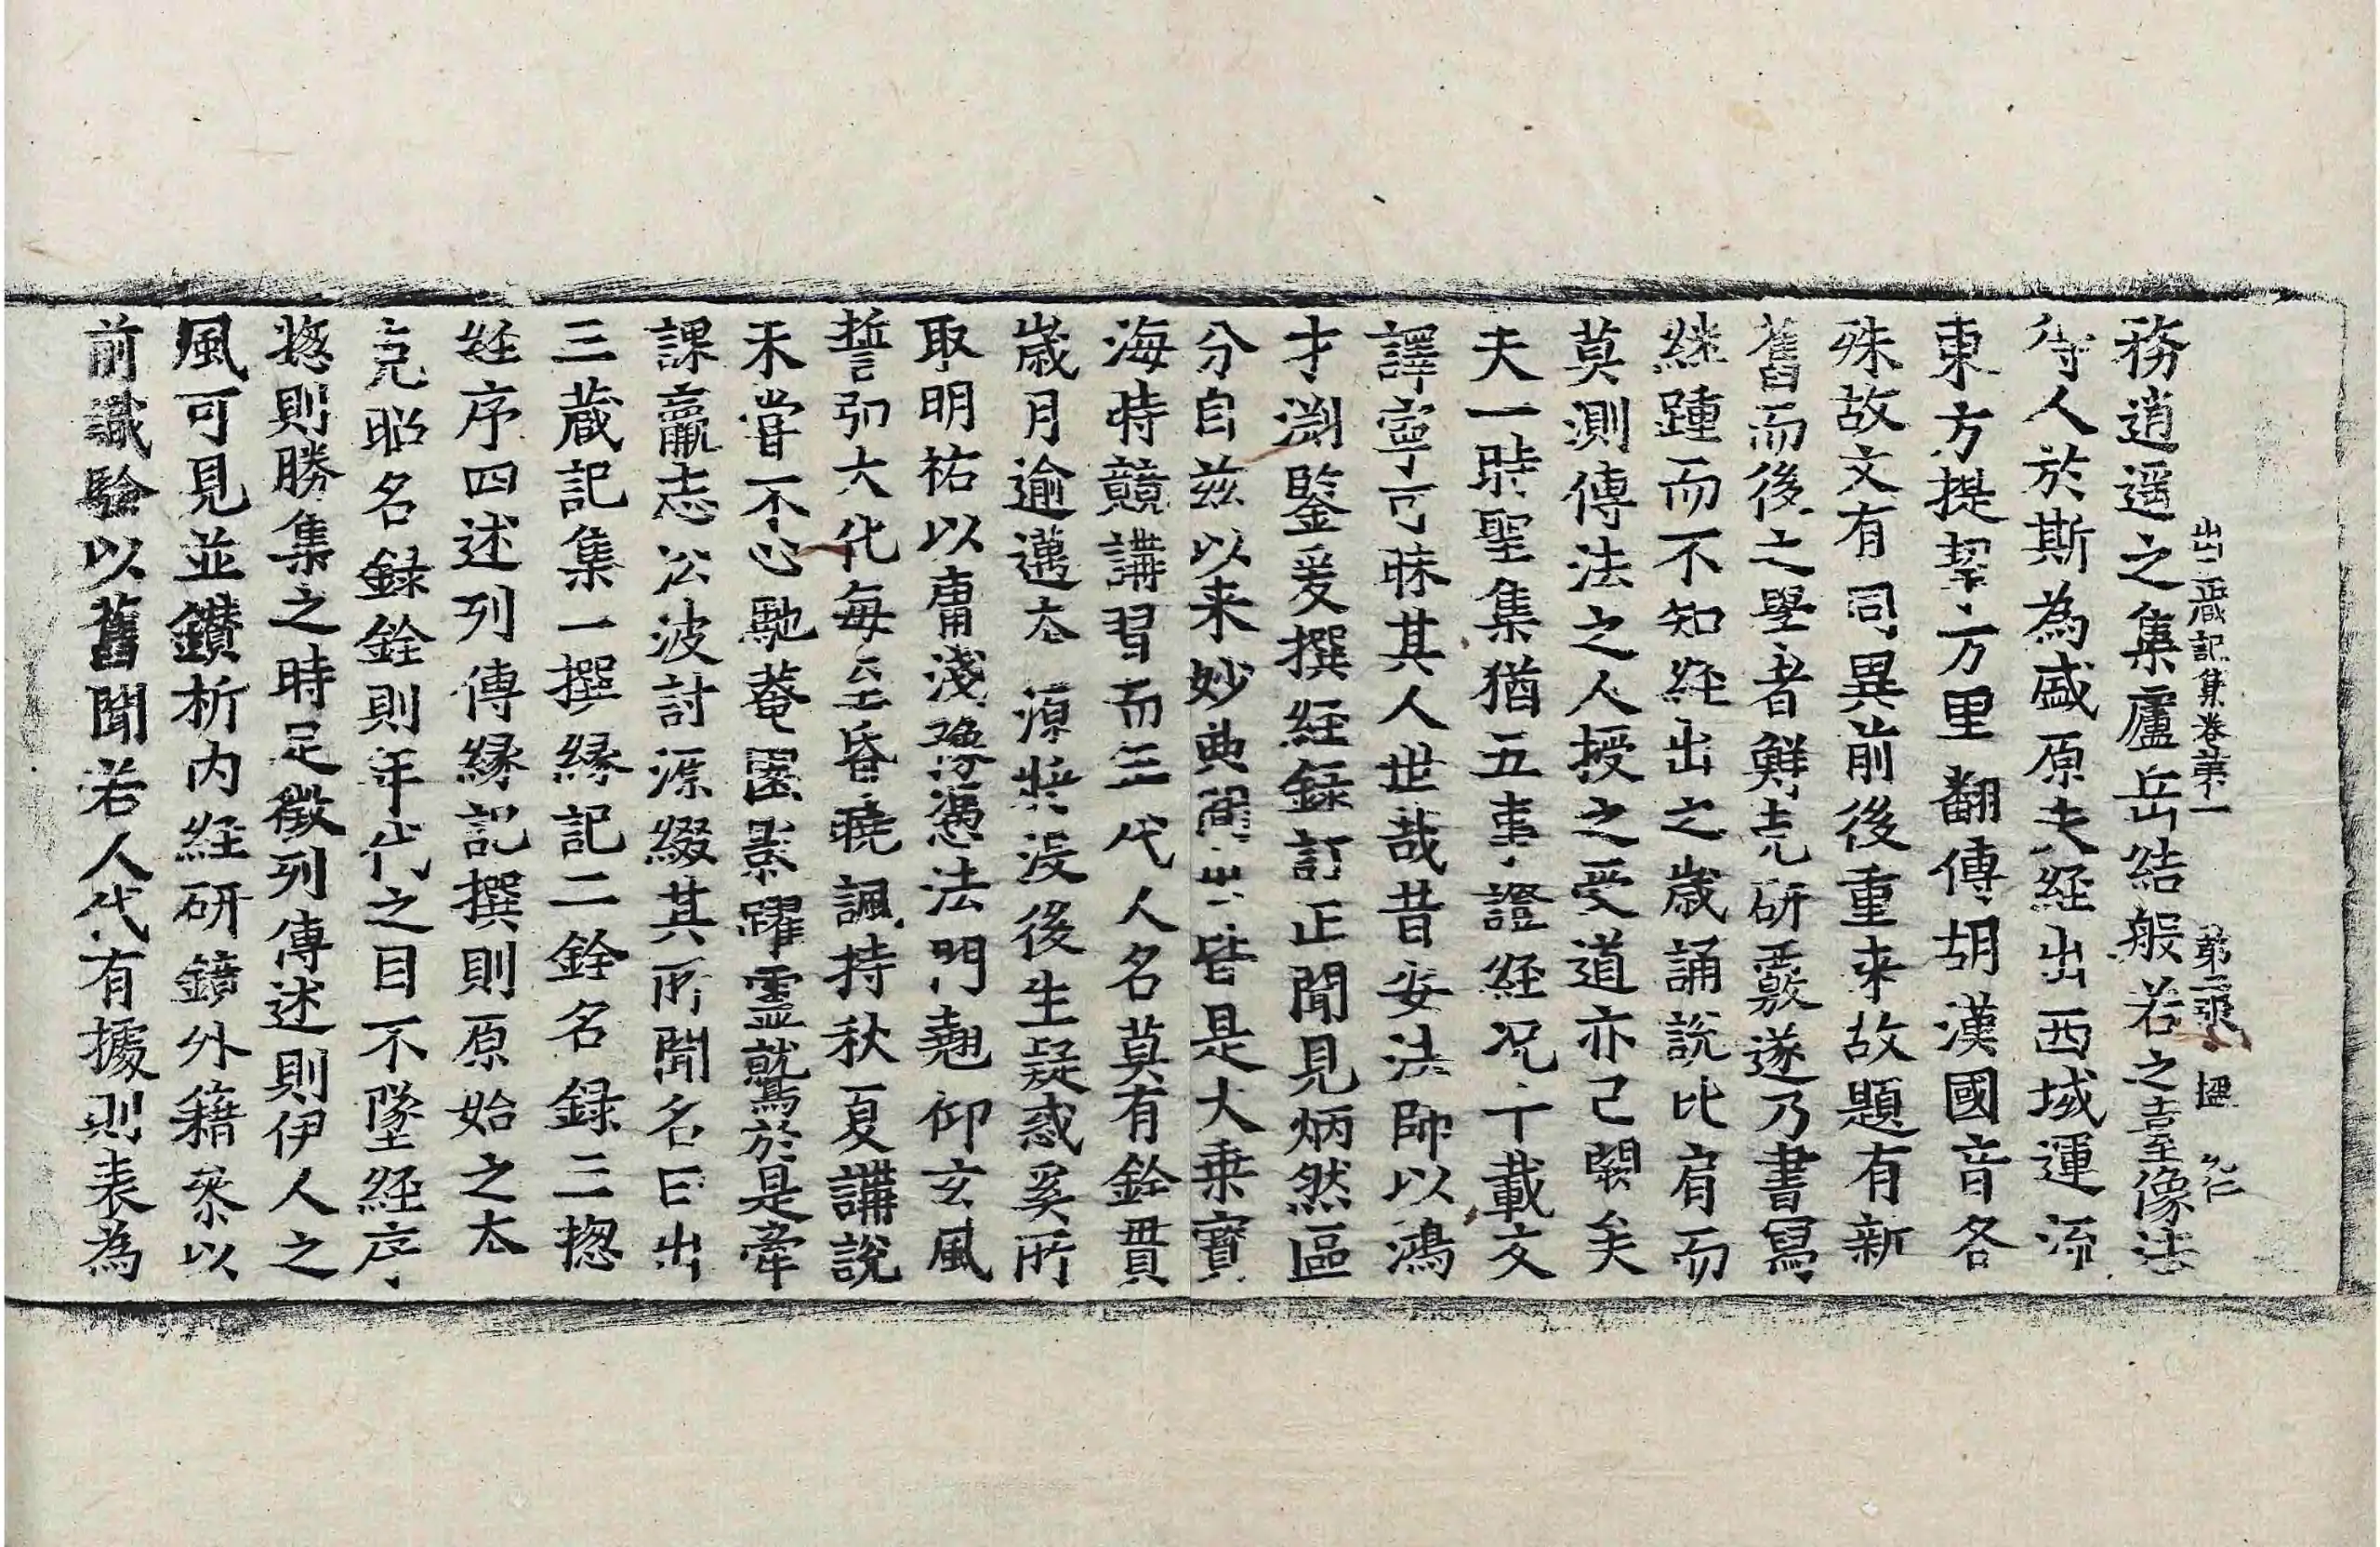 出三藏記集卷第一 第二張 楹
務逍遥之集廬岳結般若之臺像法
待人於斯為盛原夫経出西域運流
東方提挈万里翻傳胡漢國音各
殊故文有同異前後重来故題有新
舊而後之學者鮮克研覈遂乃書寫
継踵而不知経出之歲誦說比肩而
莫測傳法之人授之受道亦已闕矣
夫一時聖集猶五事證経况千載交
譯寧可昧其人世哉昔安法師以鴻
才渕鑒爰撰経錄訂正聞見炳然區
分自兹以来妙典間出皆是大乗寶
海時競講習而年代人名莫有銓貫
歲月逾邁本源將没後生疑惑奚所
取明祐以庸淺豫憑法門翹仰玄風
誓弘大化每至昏曉諷持秋夏講說
未甞不心馳菴園影躍靈鷲於是牽
課羸志沿波討源綴其所聞名曰出
三藏記集一撰縁記二銓名錄三揔
経序四述列傳縁記撰則原始之本
克昭名録銓則年代之目不墜経序
揔則勝集之時足徵列傳述則伊人之
風可見並鑽析内経研鏡外籍叅以
前識驗以舊聞若人代有據則表為